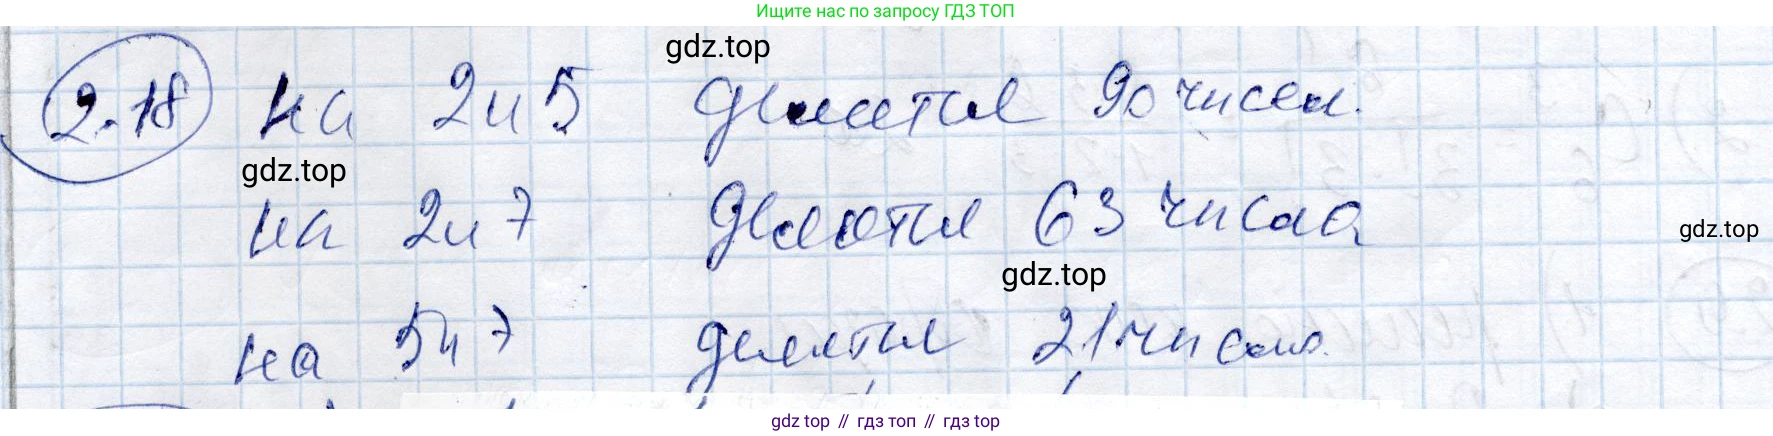 Ищите нас по запросу ГДЗ ТОП
gdz.top
2.18 на 2 и 5 делятся 90 чисел.
gdz.top
на 2 и 7 делятся 63 числа
gdz.top
gdz.top
на 5 и 7 делятся 21 число.
gdz top // гдз топ // gdz top